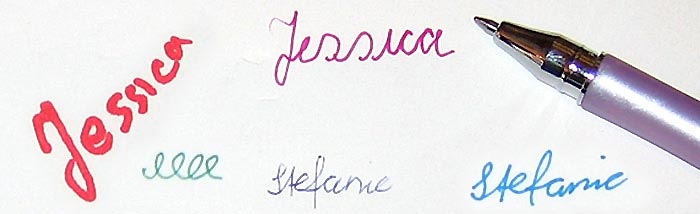 Jessica
Jessica
Stefanie
Stefanie